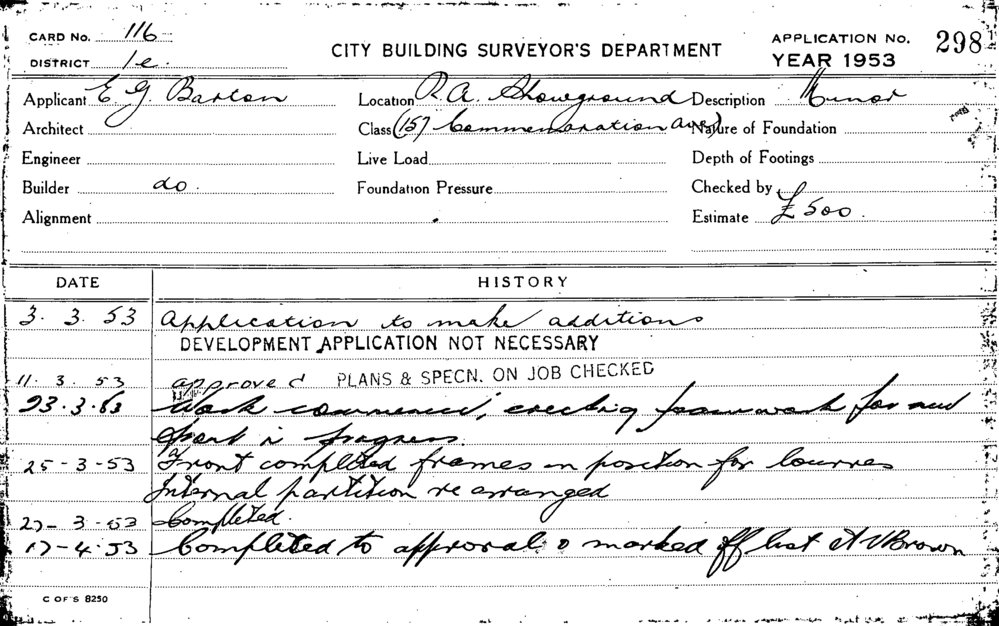 CARD No. 116
CITY BUILDING SURVEYOR'S DEPARTMENT
APPLICATION No. 298
DISTRICT 1e.
YEAR 1953
Applicant E G Barton Location R.A. Showground Description Minor
Architect Class (157 Commemoration Ave) Nature of Foundation
Engineer Live Load Depth of Footings
Builder do. Foundation Pressure Checked by
Alignment Estimate £500.
DATE HISTORY
3. 3. 53 Application to make additions
DEVELOPMENT APPLICATION NOT NECESSARY
11. 3. 53 approved PLANS & SPECN. ON JOB CHECKED
23.3.53 Work commenced, erecting framework for new
front in progress.
25-3-53 Front completed frames in position for louvres
Internal partition re arranged
27-3-53 Completed.
17-4-53 Completed to approval & marked off list A V Brown
C OF S 8250